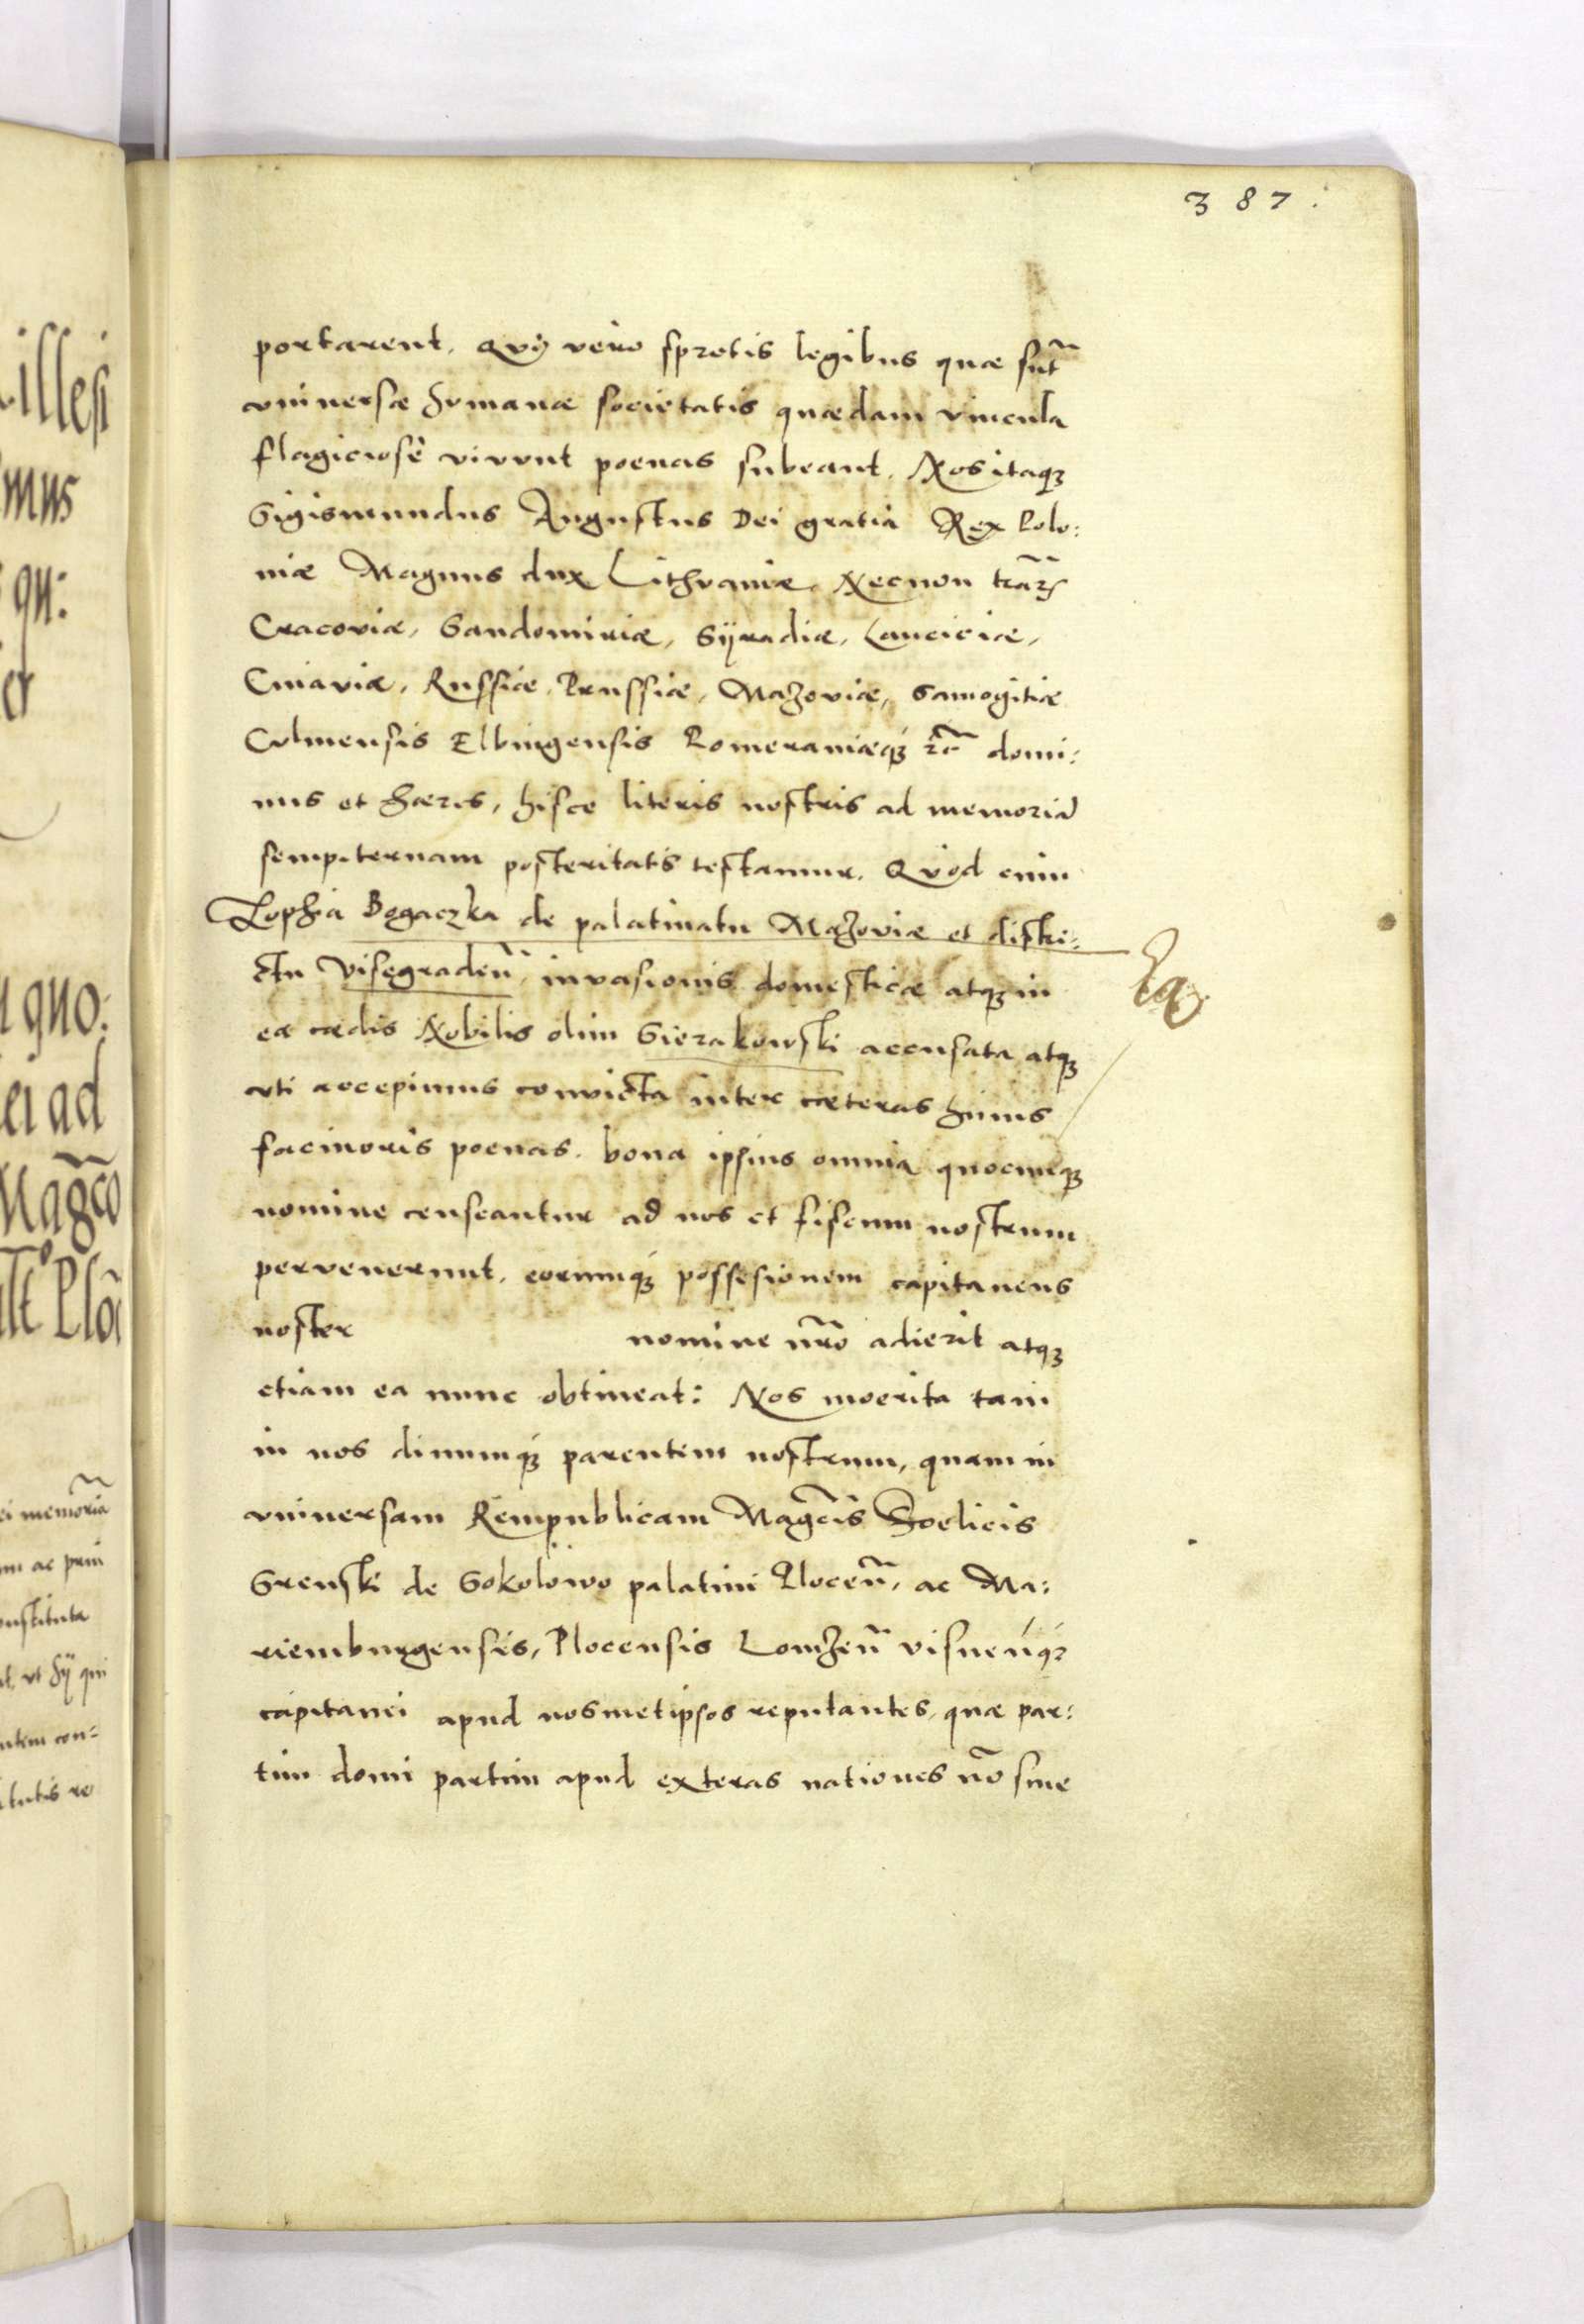 387.
portarent. Qui vero spretis legibus quæ sūt
vniuersæ humanæ societatis quædam vincula
flagiciosè vivunt poenas subeant. Nos itaq3
Sigismundus Augustus Dei gratia Rex Polo:
niæ Magnus dux Lithvaniæ, Necnon trār3
Cracoviæ, Sandomiriæ, Syradiæ, Lanciciæ,
Cuiaviæ, Russiæ, Prussiæ, Mazoviæ, Samogitiæ
Culmensis Elbingensis Pomeraniæq3 rc̄ domi:
nus et hæres, hisce literis nostris ad memoriā
sempiternam posteritatis testamur. Quod cum
Zophia Bogaczka de palatinatu Mazoviæ et distri:
ctu Visegradeñ invasionis domesticæ atq3 in
ea cædis Nobilis olim Sierakowski accusata atq3
vti accepimus convicta inter cæteras huius
facinoris poenas. bona ipsius omnia quocunq3
nomine censeantur ad nos et fiscum nostrum
pervenerunt, eorumq3 possesionem capitaneus
noster nomine nr̄o adierit atq3
etiam ea nunc obtineat: Nos moerita tam
in nos diuumq3 parentem nostrum, quam in
vniuersam Rempublicam Magc̄is Foelicis
Srenski de Sokolowo palatini Plocen̄, ac Ma:
riemburgensis, Plocensis Lomzen̄ visnen̄q3
capitanei apud nosmetipsos reputantes, quæ par:
tim domi partim apud exteras nationes nō sine